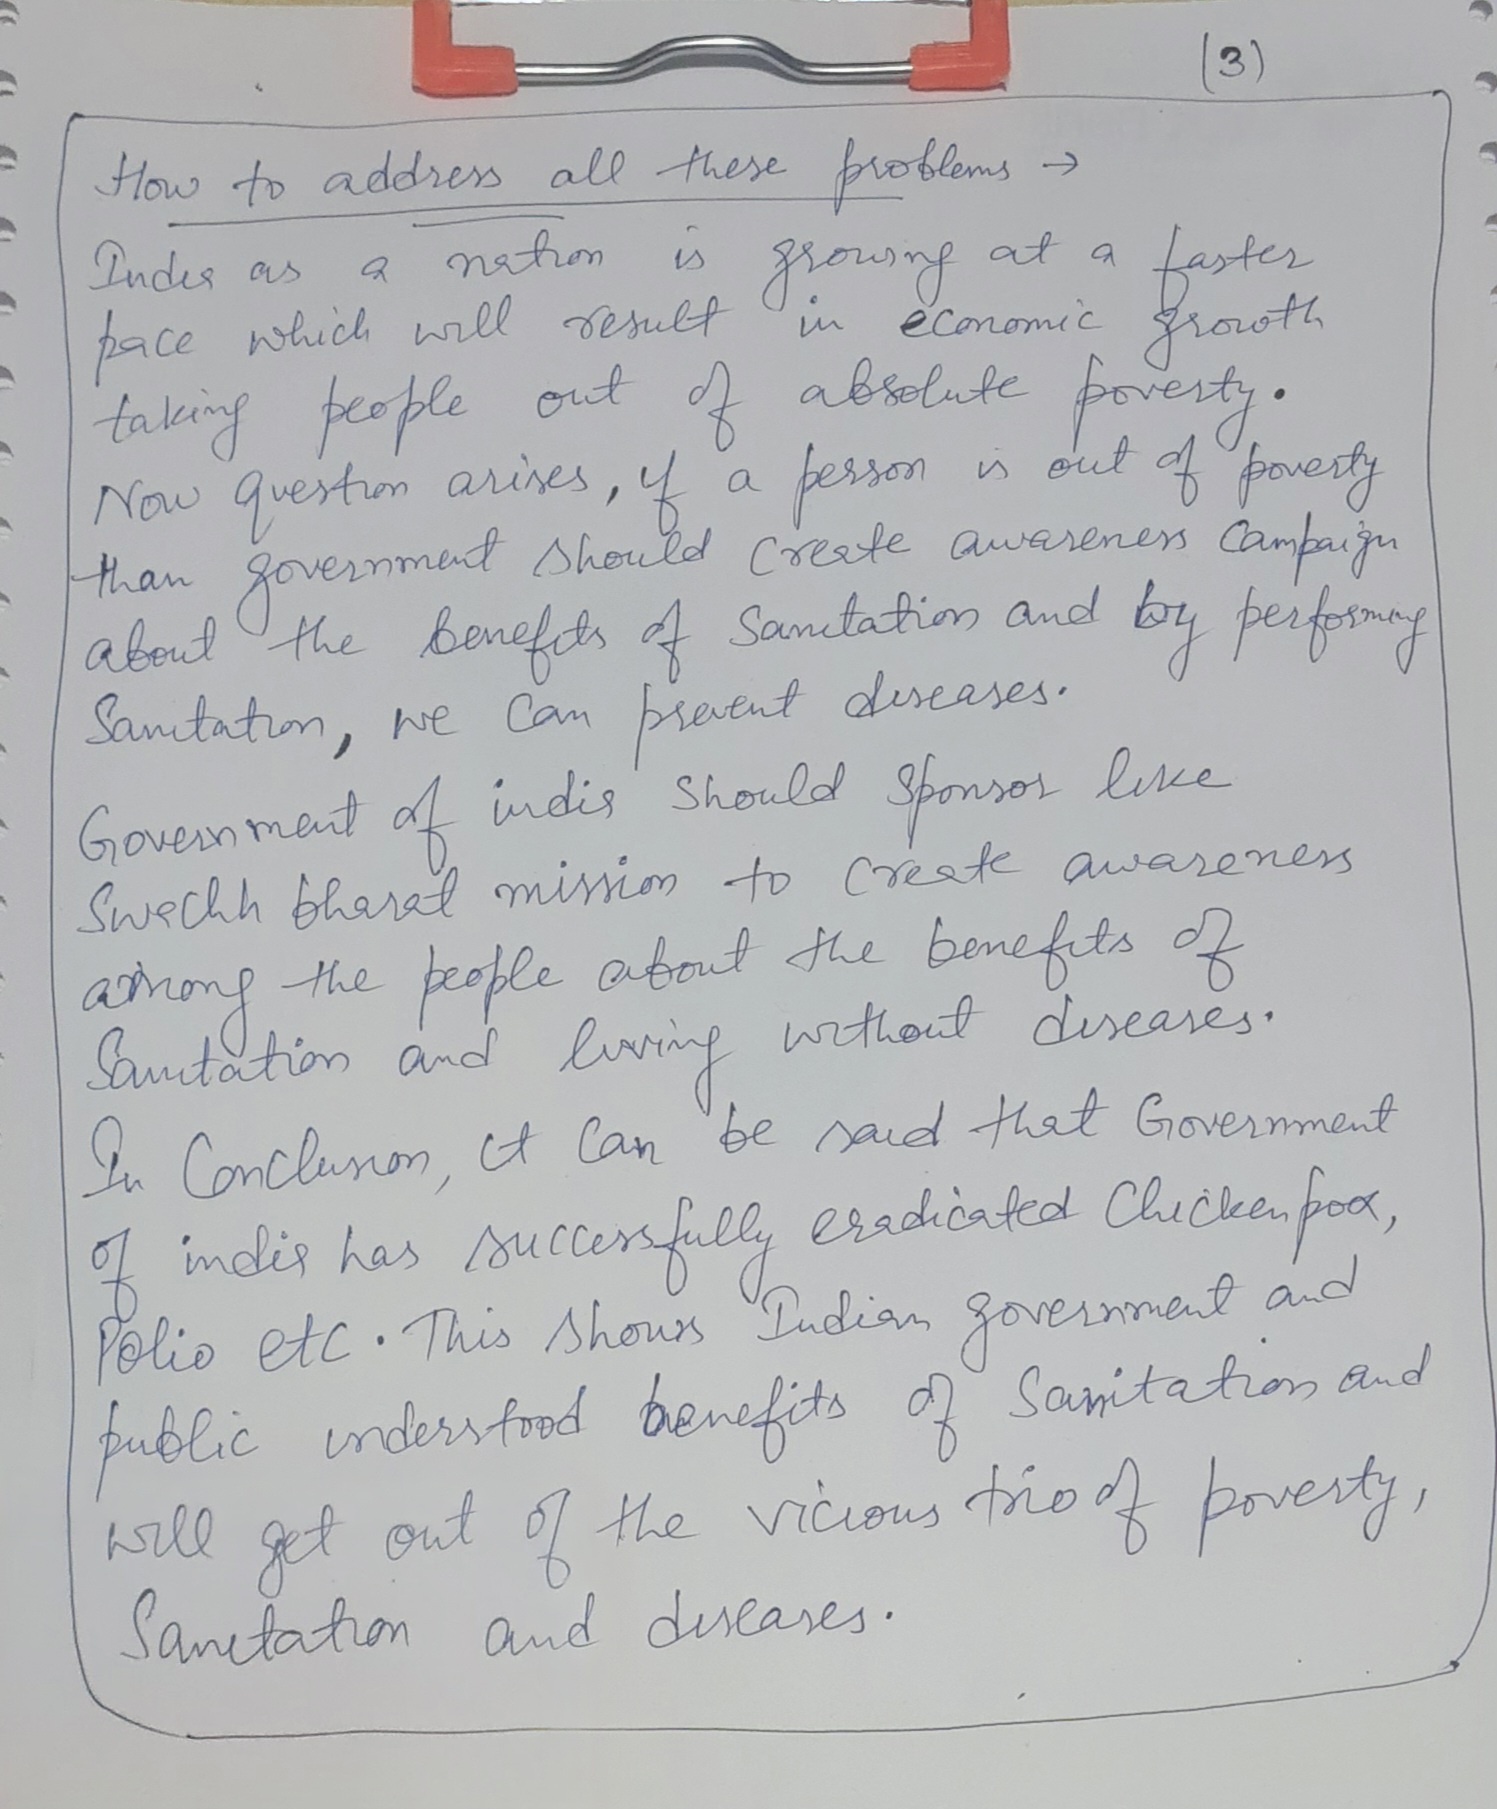 (3)
How to address all these problems →
India as a nation is growing at a faster
pace which will result in economic growth
taking people out of absolute poverty.
Now question arises, if a person is out of poverty
than government should create awareness campaign
about the benefits of Sanitation and by performing
Sanitation, we can prevent diseases.
Government of india should sponsor like
Swachh bharat mission to create awareness
among the people about the benefits of
Sanitation and living without diseases.
In Conclusion, it can be said that Government
of india has successfully eradicated Chickenpox,
Polio etc. This shows Indian government and
public understood benefits of Sanitation and
will get out of the vicious trio of poverty,
Sanitation and diseases.